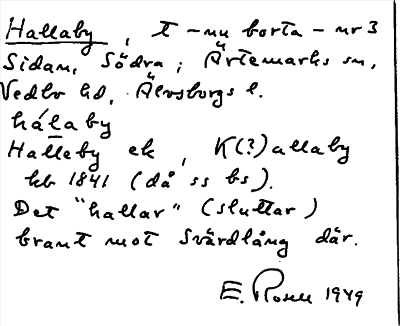 Hallaby, t - nu borta - nr 3
Sidan, Södra; Ärtemarks sn,
Vedbo hd, Älvsborgs l.
hálaby
Halleby ek, K(?)allaby
kb 1841 (då ss bs).
Det "hallar" (sluttar)
brant mot Svärdlång där.
E. Rosell 1949